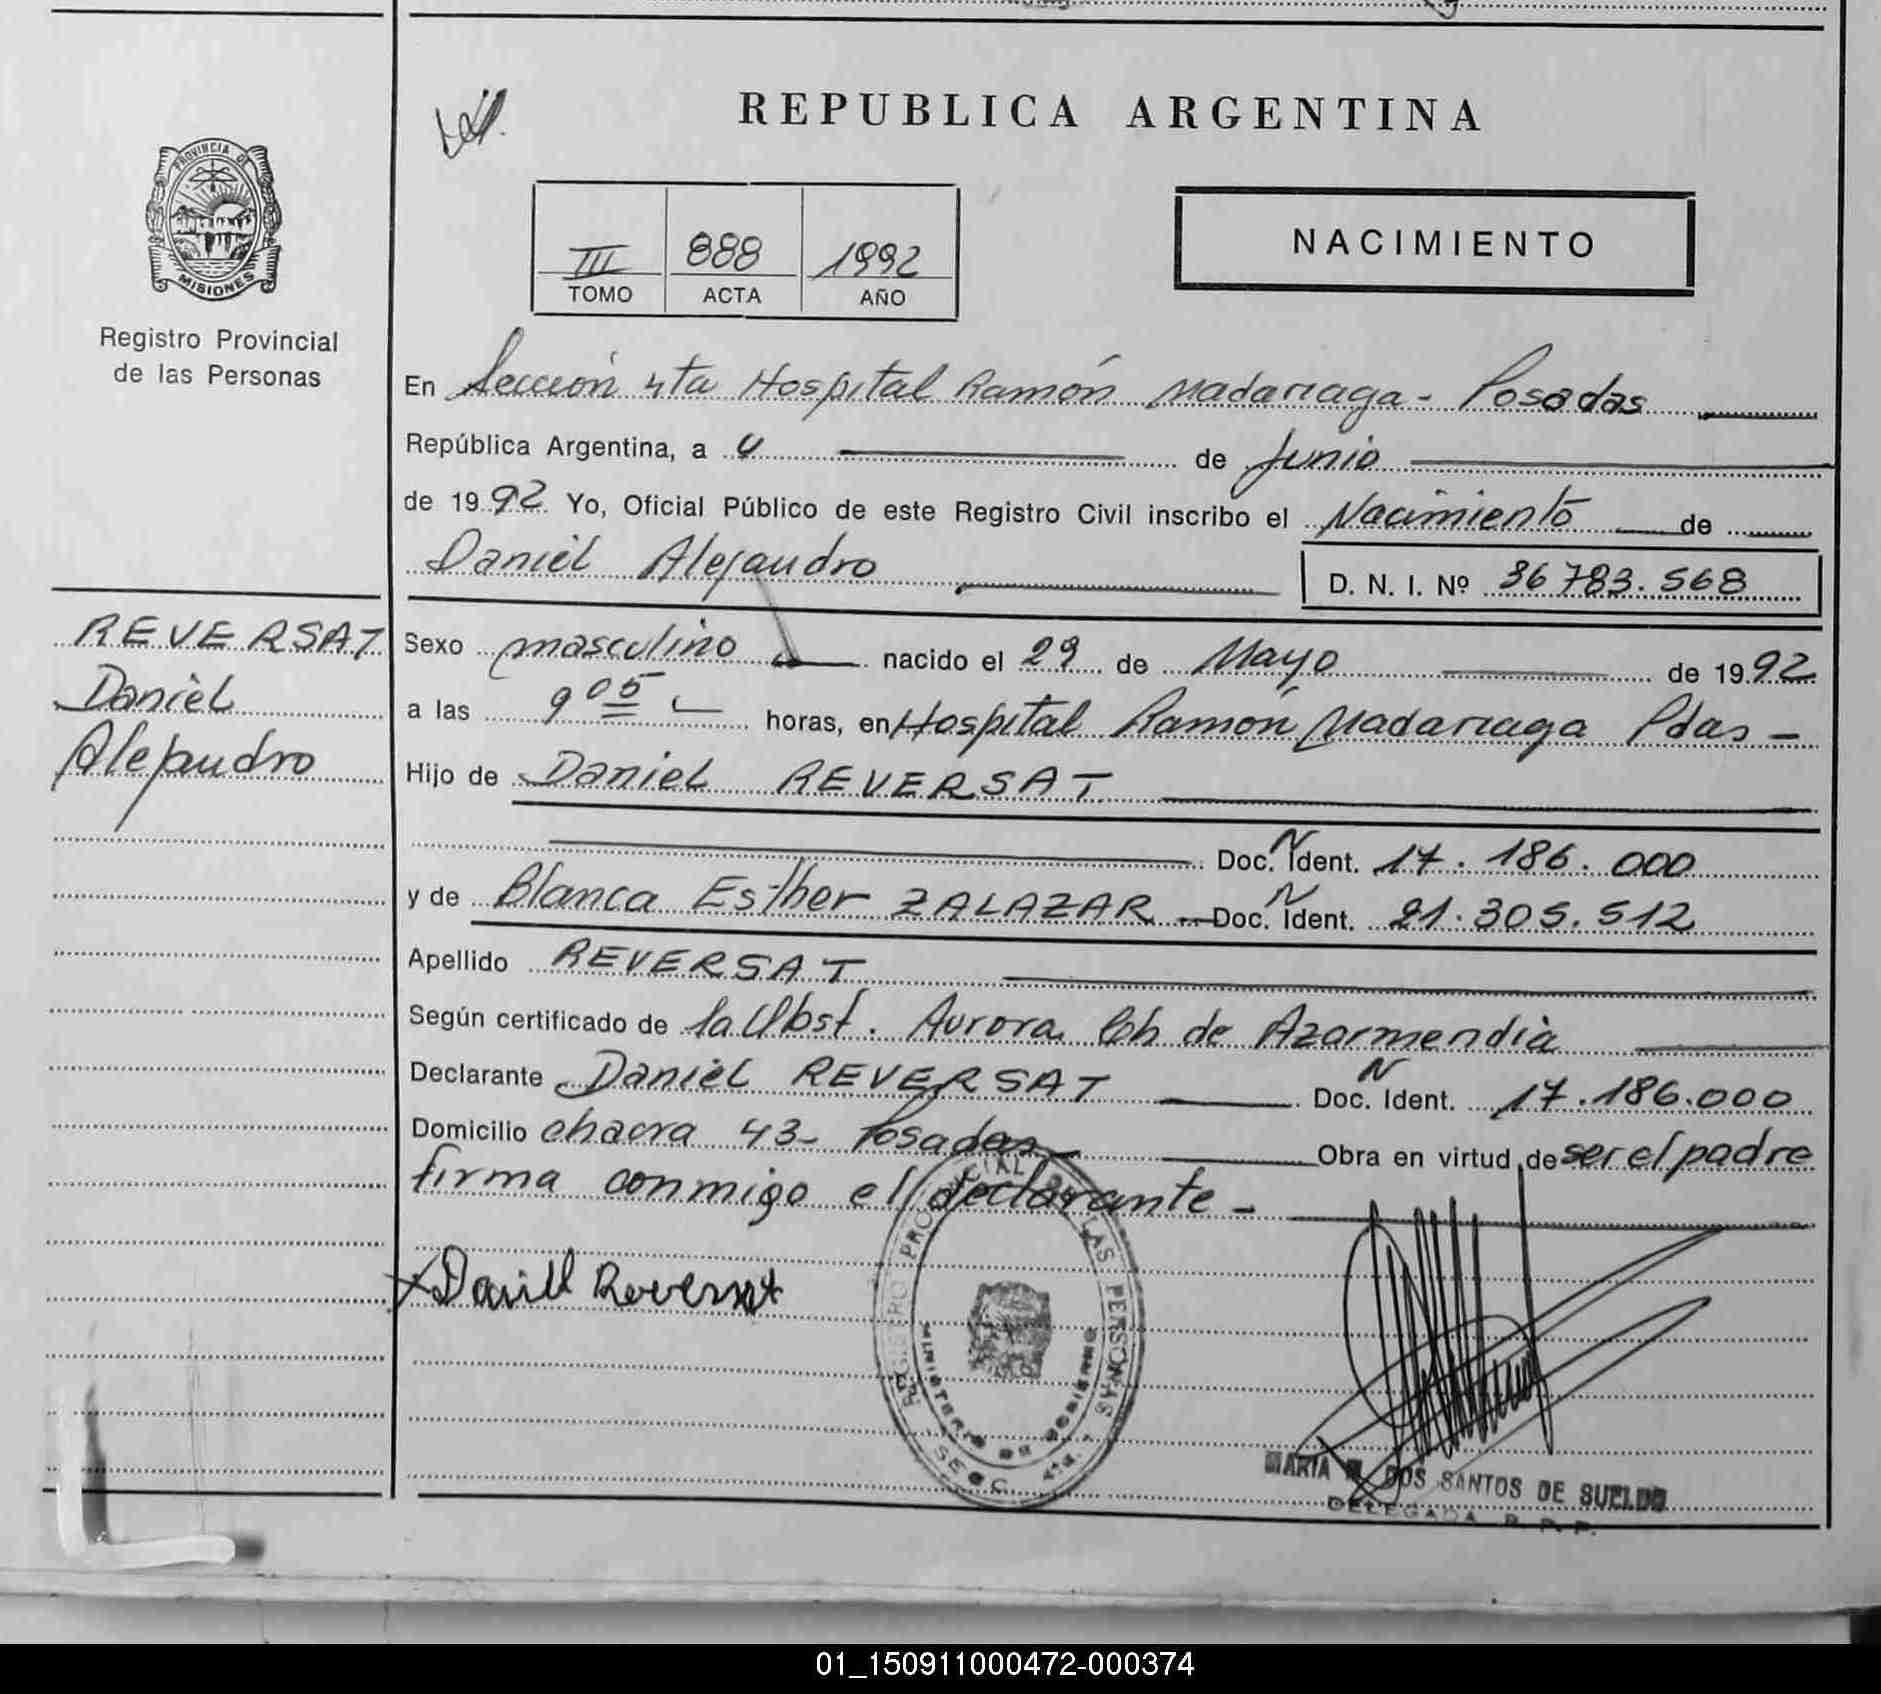 REPUBLICA ARGENTINA
PROVINCIA DE
MISIONES
Registro Provincial
de las Personas
III 888 1992
TOMO ACTA AÑO
NACIMIENTO
En Sección 4ta Hospital Ramón Madariaga - Posadas
República Argentina, a 4 de Junio
de 1992 Yo, Oficial Público de este Registro Civil inscribo el Nacimiento de
Daniel Alejandro D. N. I. Nº 36783.568
REVERSAT
Daniel
Alejandro
Sexo masculino nacido el 29 de Mayo de 1992
a las 9 05 horas, en Hospital Ramón Madariaga Pdas -
Hijo de Daniel REVERSAT
Doc. N Ident. 17.186.000
y de Blanca Esther ZALAZAR Doc. N Ident. 21.305.512
Apellido REVERSAT
Según certificado de la Obst. Aurora de Azarmendia
Declarante Daniel REVERSAT Doc. N Ident. 17.186.000
Domicilio chacra 43- Posadas Obra en virtud de ser el padre
firma conmigo el declarante -
X Daniel Reversat
REGISTRO PROVINCIAL DE LAS PERSONAS
MINISTERIO DE GOBIERNO
SECC. 4ta.
MARIA DOS SANTOS DE SUELDO
DELEGADA R. P. P.
01_150911000472-000374